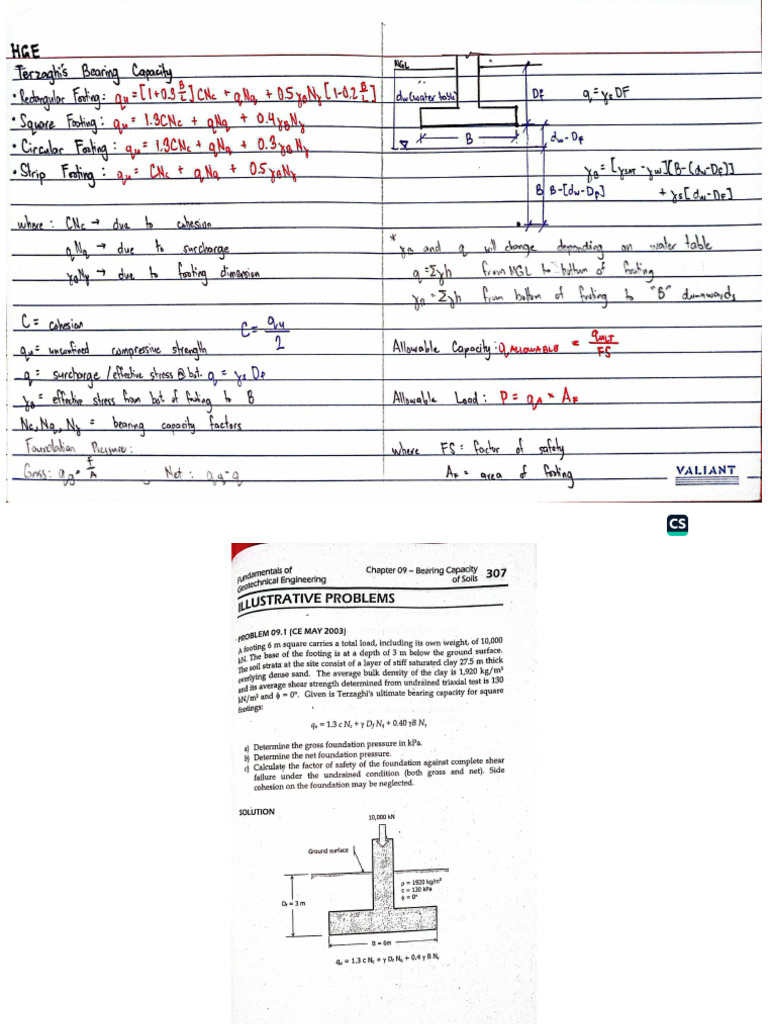 HGE
Terzaghi's Bearing Capacity
• Rectangular Footing: qu = [1+0.3 B/L] CNc + qNq + 0.5 γBNγ [1-0.2 B/L]
• Square Footing: qu = 1.3CNc + qNq + 0.4γBNγ
• Circular Footing: qu = 1.3CNc + qNq + 0.3γBNγ
• Strip Footing: qu = CNc + qNq + 0.5γBNγ
where: CNc → due to cohesion
qNq → due to surcharge
γBNγ → due to footing dimension
C = cohesion
C = qu/2
qu = unconfined compressive strength
q = surcharge / effective stress @ bot. q = γs Df
γB = effective stress from bot of footing to B
Nc, Nq, Nγ = bearing capacity factors
Foundation Pressure:
Gross: qg = P/A ; Net: qg-q
NGL
dw (water table)
Df
q = γsDF
B
dw-Df
B
B-[dw-Df]
γB = [γSAT - γw][B-(dw-DF)]
+ γs[dw-DF]
*
γB and q will change depending on water table
q = Σγh from NGL to bottom of footing
γB = Σγh from bottom of footing to "B" downwards
Allowable Capacity: qALLOWABLE = qULT/FS
Allowable Load: P = qA * AF
where FS = factor of safety
AF = area of footing
VALIANT
CS
Fundamentals of
Geotechnical Engineering
Chapter 09 – Bearing Capacity
of Soils
307
ILLUSTRATIVE PROBLEMS
PROBLEM 09.1 (CE MAY 2003)
A footing 6 m square carries a total load, including its own weight, of 10,000
kN. The base of the footing is at a depth of 3 m below the ground surface.
The soil strata at the site consist of a layer of stiff saturated clay 27.5 m thick
overlying dense sand. The average bulk density of the clay is 1,920 kg/m³
and its average shear strength determined from undrained triaxial test is 130
kN/m² and ϕ = 0°. Given is Terzaghi's ultimate bearing capacity for square
footings:
qu = 1.3 c Nc + γ Df Nq + 0.40 γB Nγ
a) Determine the gross foundation pressure in kPa.
b) Determine the net foundation pressure.
c) Calculate the factor of safety of the foundation against complete shear
failure under the undrained condition (both gross and net). Side
cohesion on the foundation may be neglected.
SOLUTION
10,000 kN
Ground surface
ρ = 1920 kg/m³
c = 130 kPa
ϕ = 0°
Df = 3 m
B = 6m
qu = 1.3 c Nc + γ Df Nq + 0.4 γ B Nγ